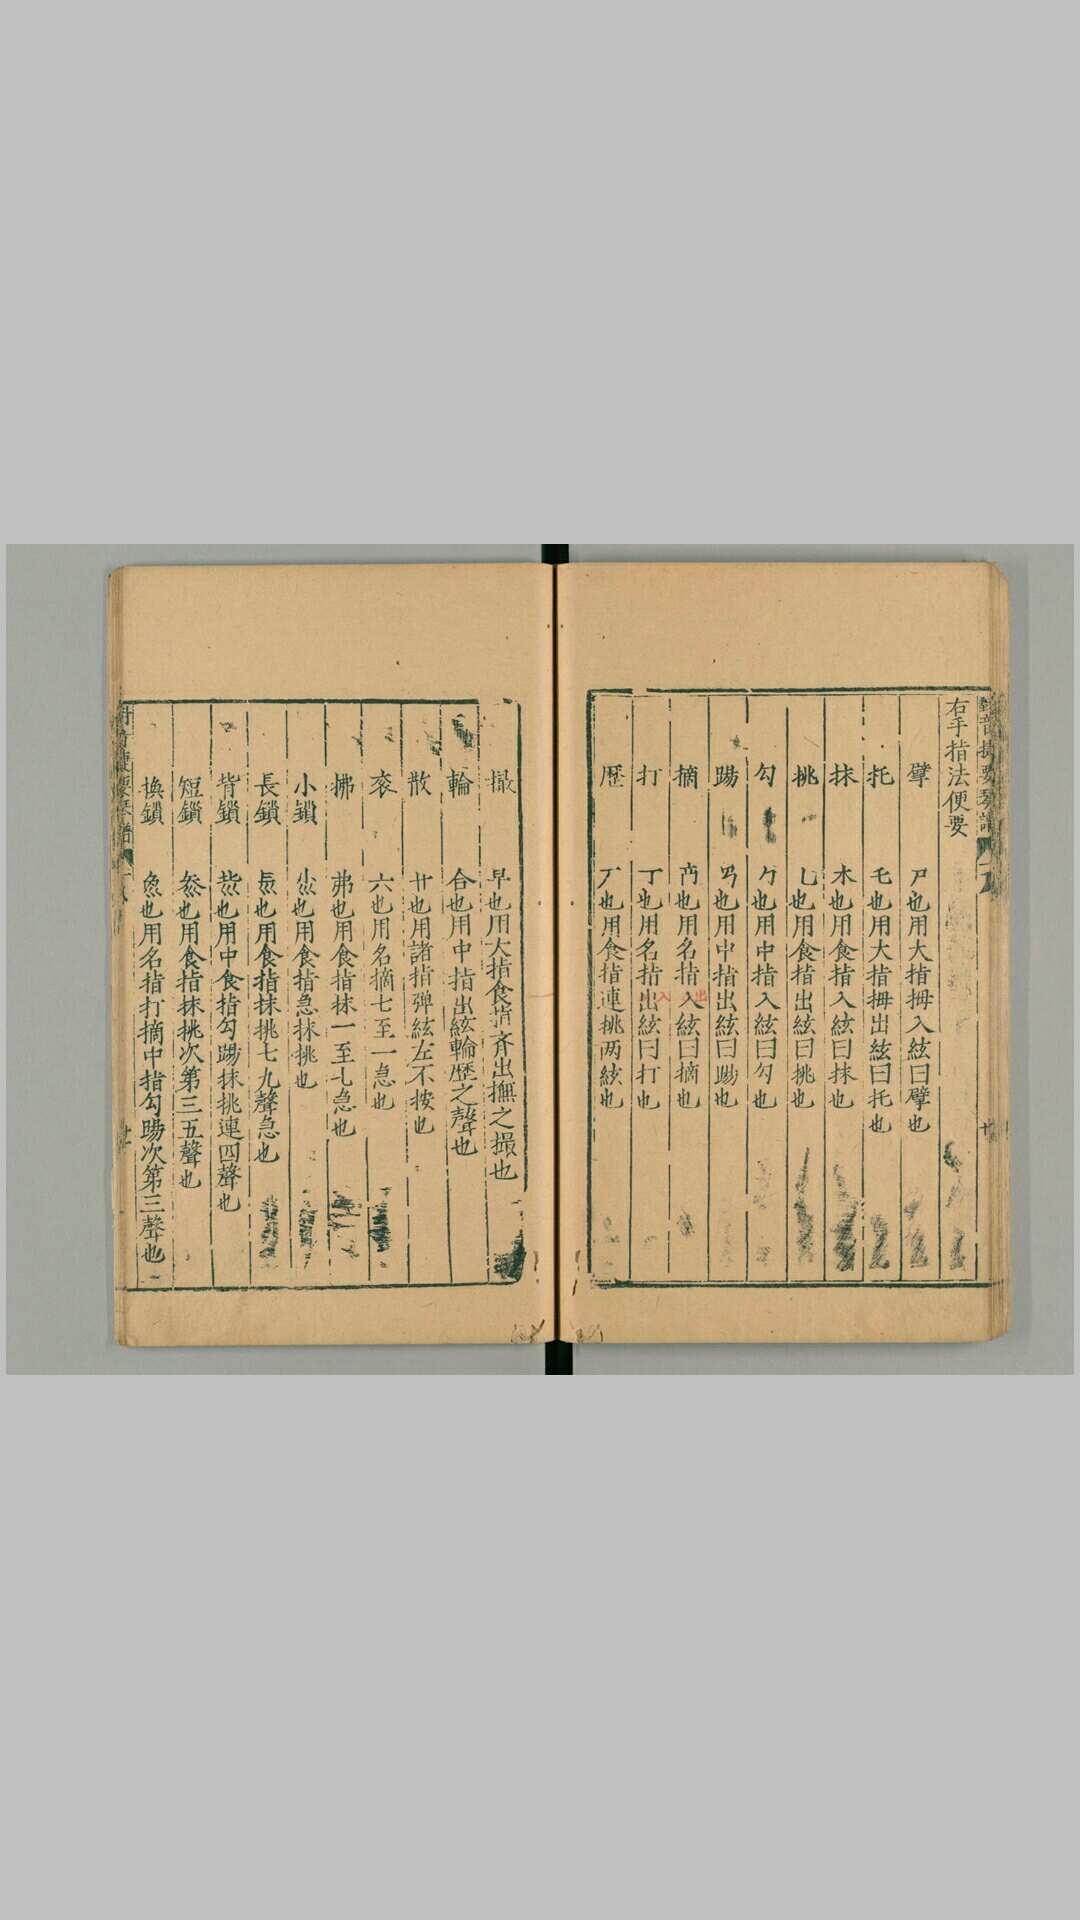 右手指法便要
擘 尸也用大指拇入絃曰擘也
托 乇也用大指拇出絃曰托也
抹 木也用食指入絃曰抹也
挑 乚也用食指出絃曰挑也
勾 勹也用中指入絃曰勾也
踢 中指出絃曰踢也
摘 也用名指入絃曰摘也
出
打 丁也用名指出絃曰打也
入
歷 丆也用食指連挑两絃也
撮 早也用大指食指齐出撫之撮也
輪 合也用中指出絃輪歷之聲也
散 卄也用諸指弹絃左不按也
滚 六也用名摘七至一急也
拂 弗也用食指抹一至七急也
小鎖 也用食指急抹挑也
長鎖 也用食指抹挑七九聲急也
背鎖 也用中食指勾踢抹挑連四聲也
短鎖 也用食指抹挑次第三五聲也
換鎖 也用名指打摘中指勾踢次第三聲也